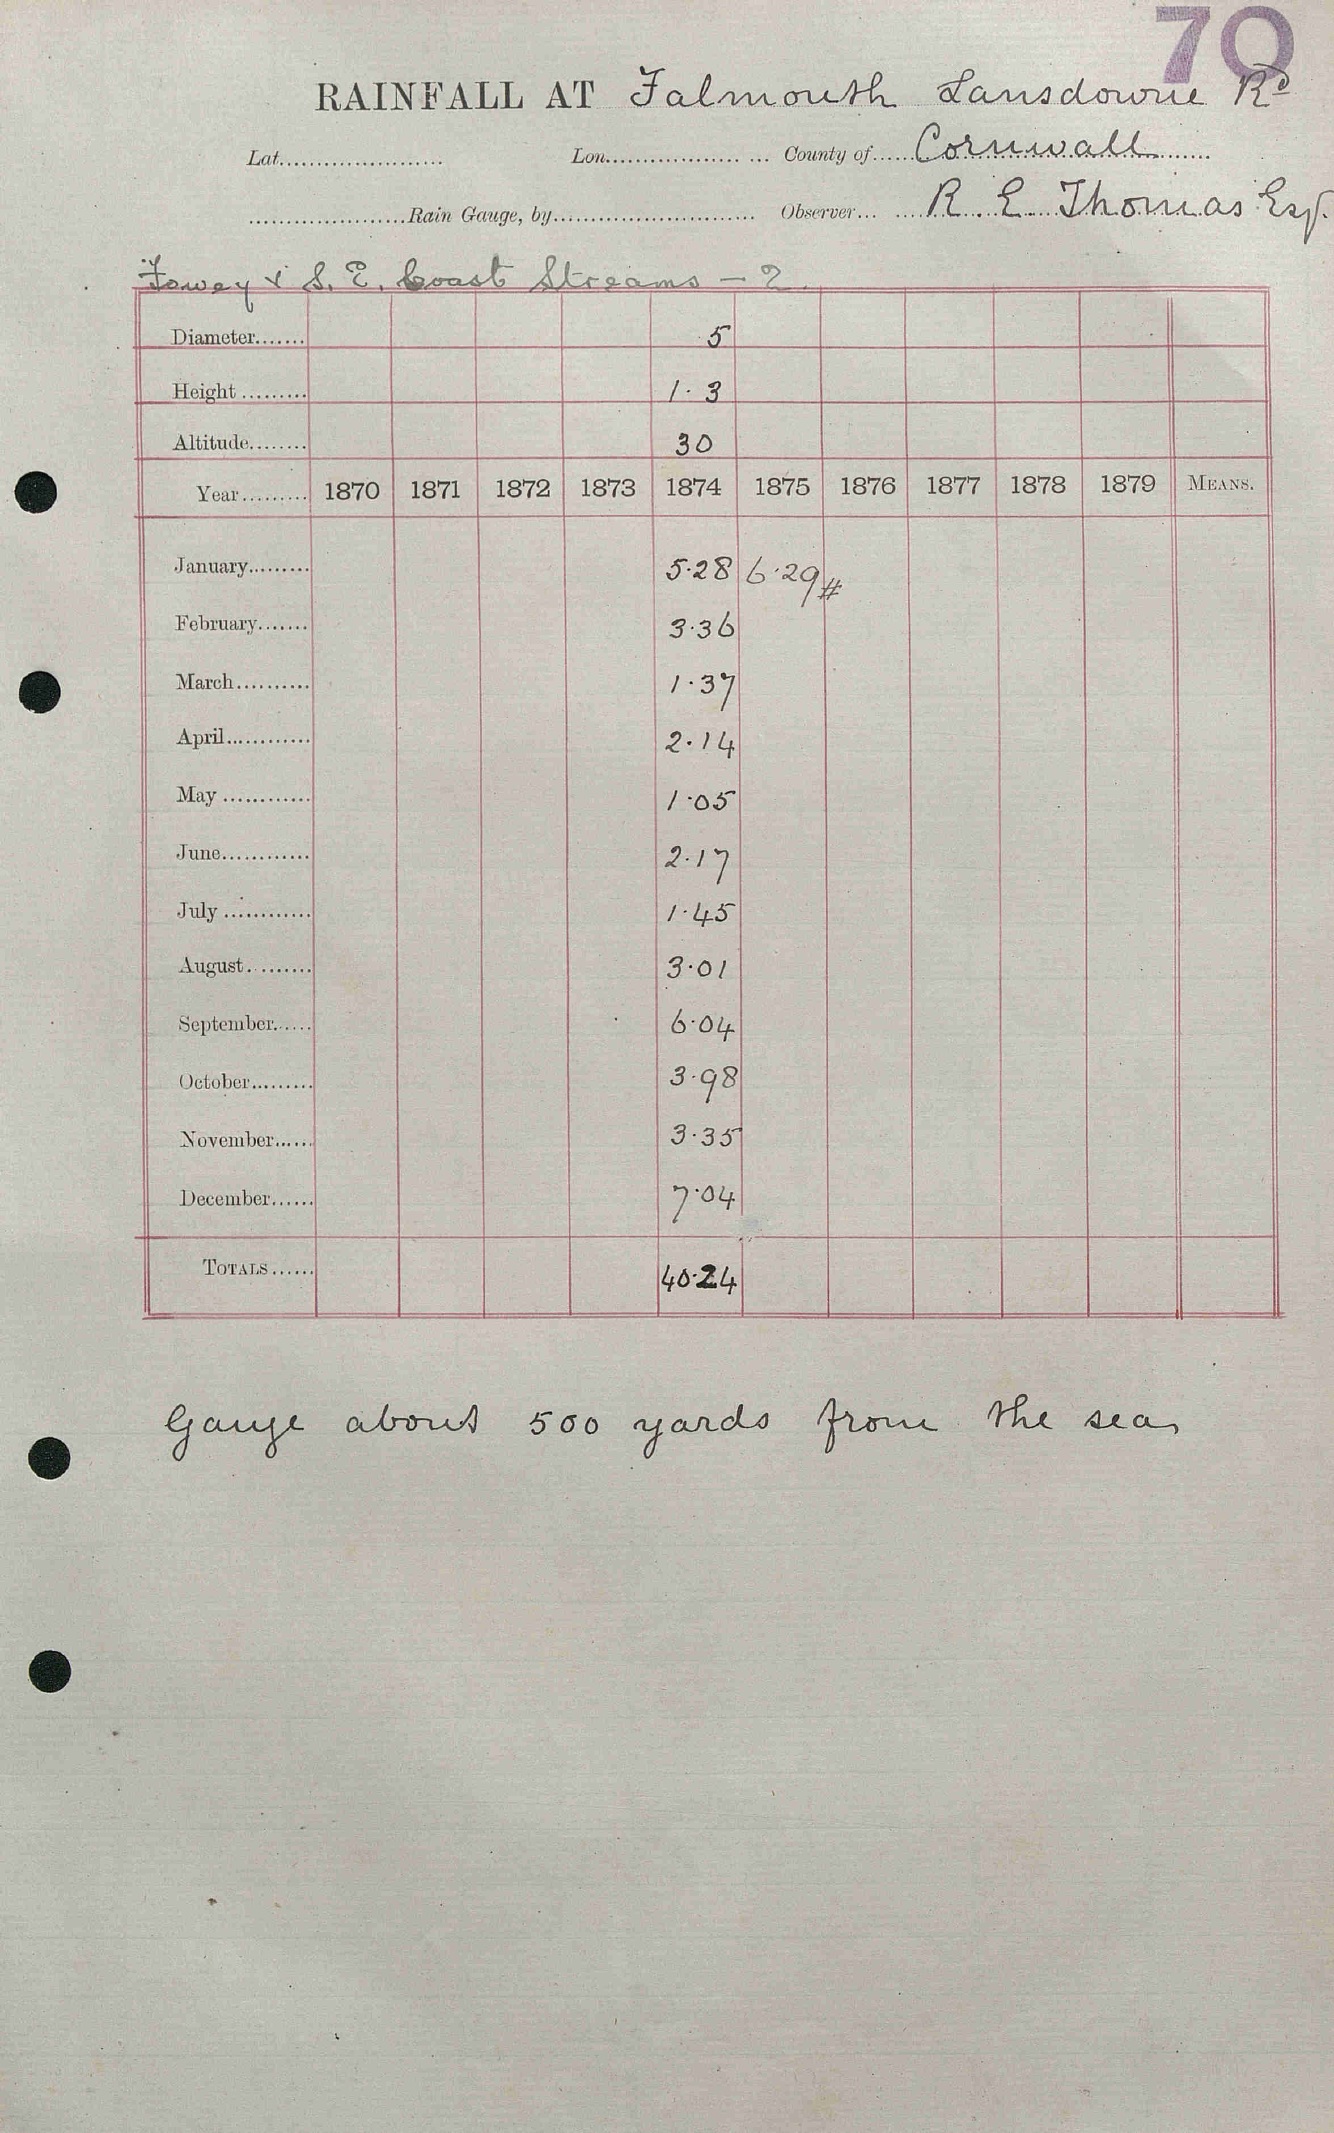 70
RAINFALL AT Falmouth Lansdowne Rd
Lat...................... Lon.................. ... County of...... Cornwall
.....................Rain Gauge, by........................... Observer... R. E. Thomas Esq.
Fowey & S. E. Coast Streams - 2.
Diameter....... 5
Height ......... 1.3
Altitude........ 30
Year......... 1870 1871 1872 1873 1874 1875 1876 1877 1878 1879 MEANS.
January......... 5.28 6.29#
February....... 3.36
March.......... 1.37
April............ 2.14
May ............ 1.05
June............ 2.17
July ............ 1.45
August......... 3.01
September...... 6.04
October......... 3.98
November...... 3.35
December...... 7.04
TOTALS...... 40.24
Gauge about 500 yards from the sea